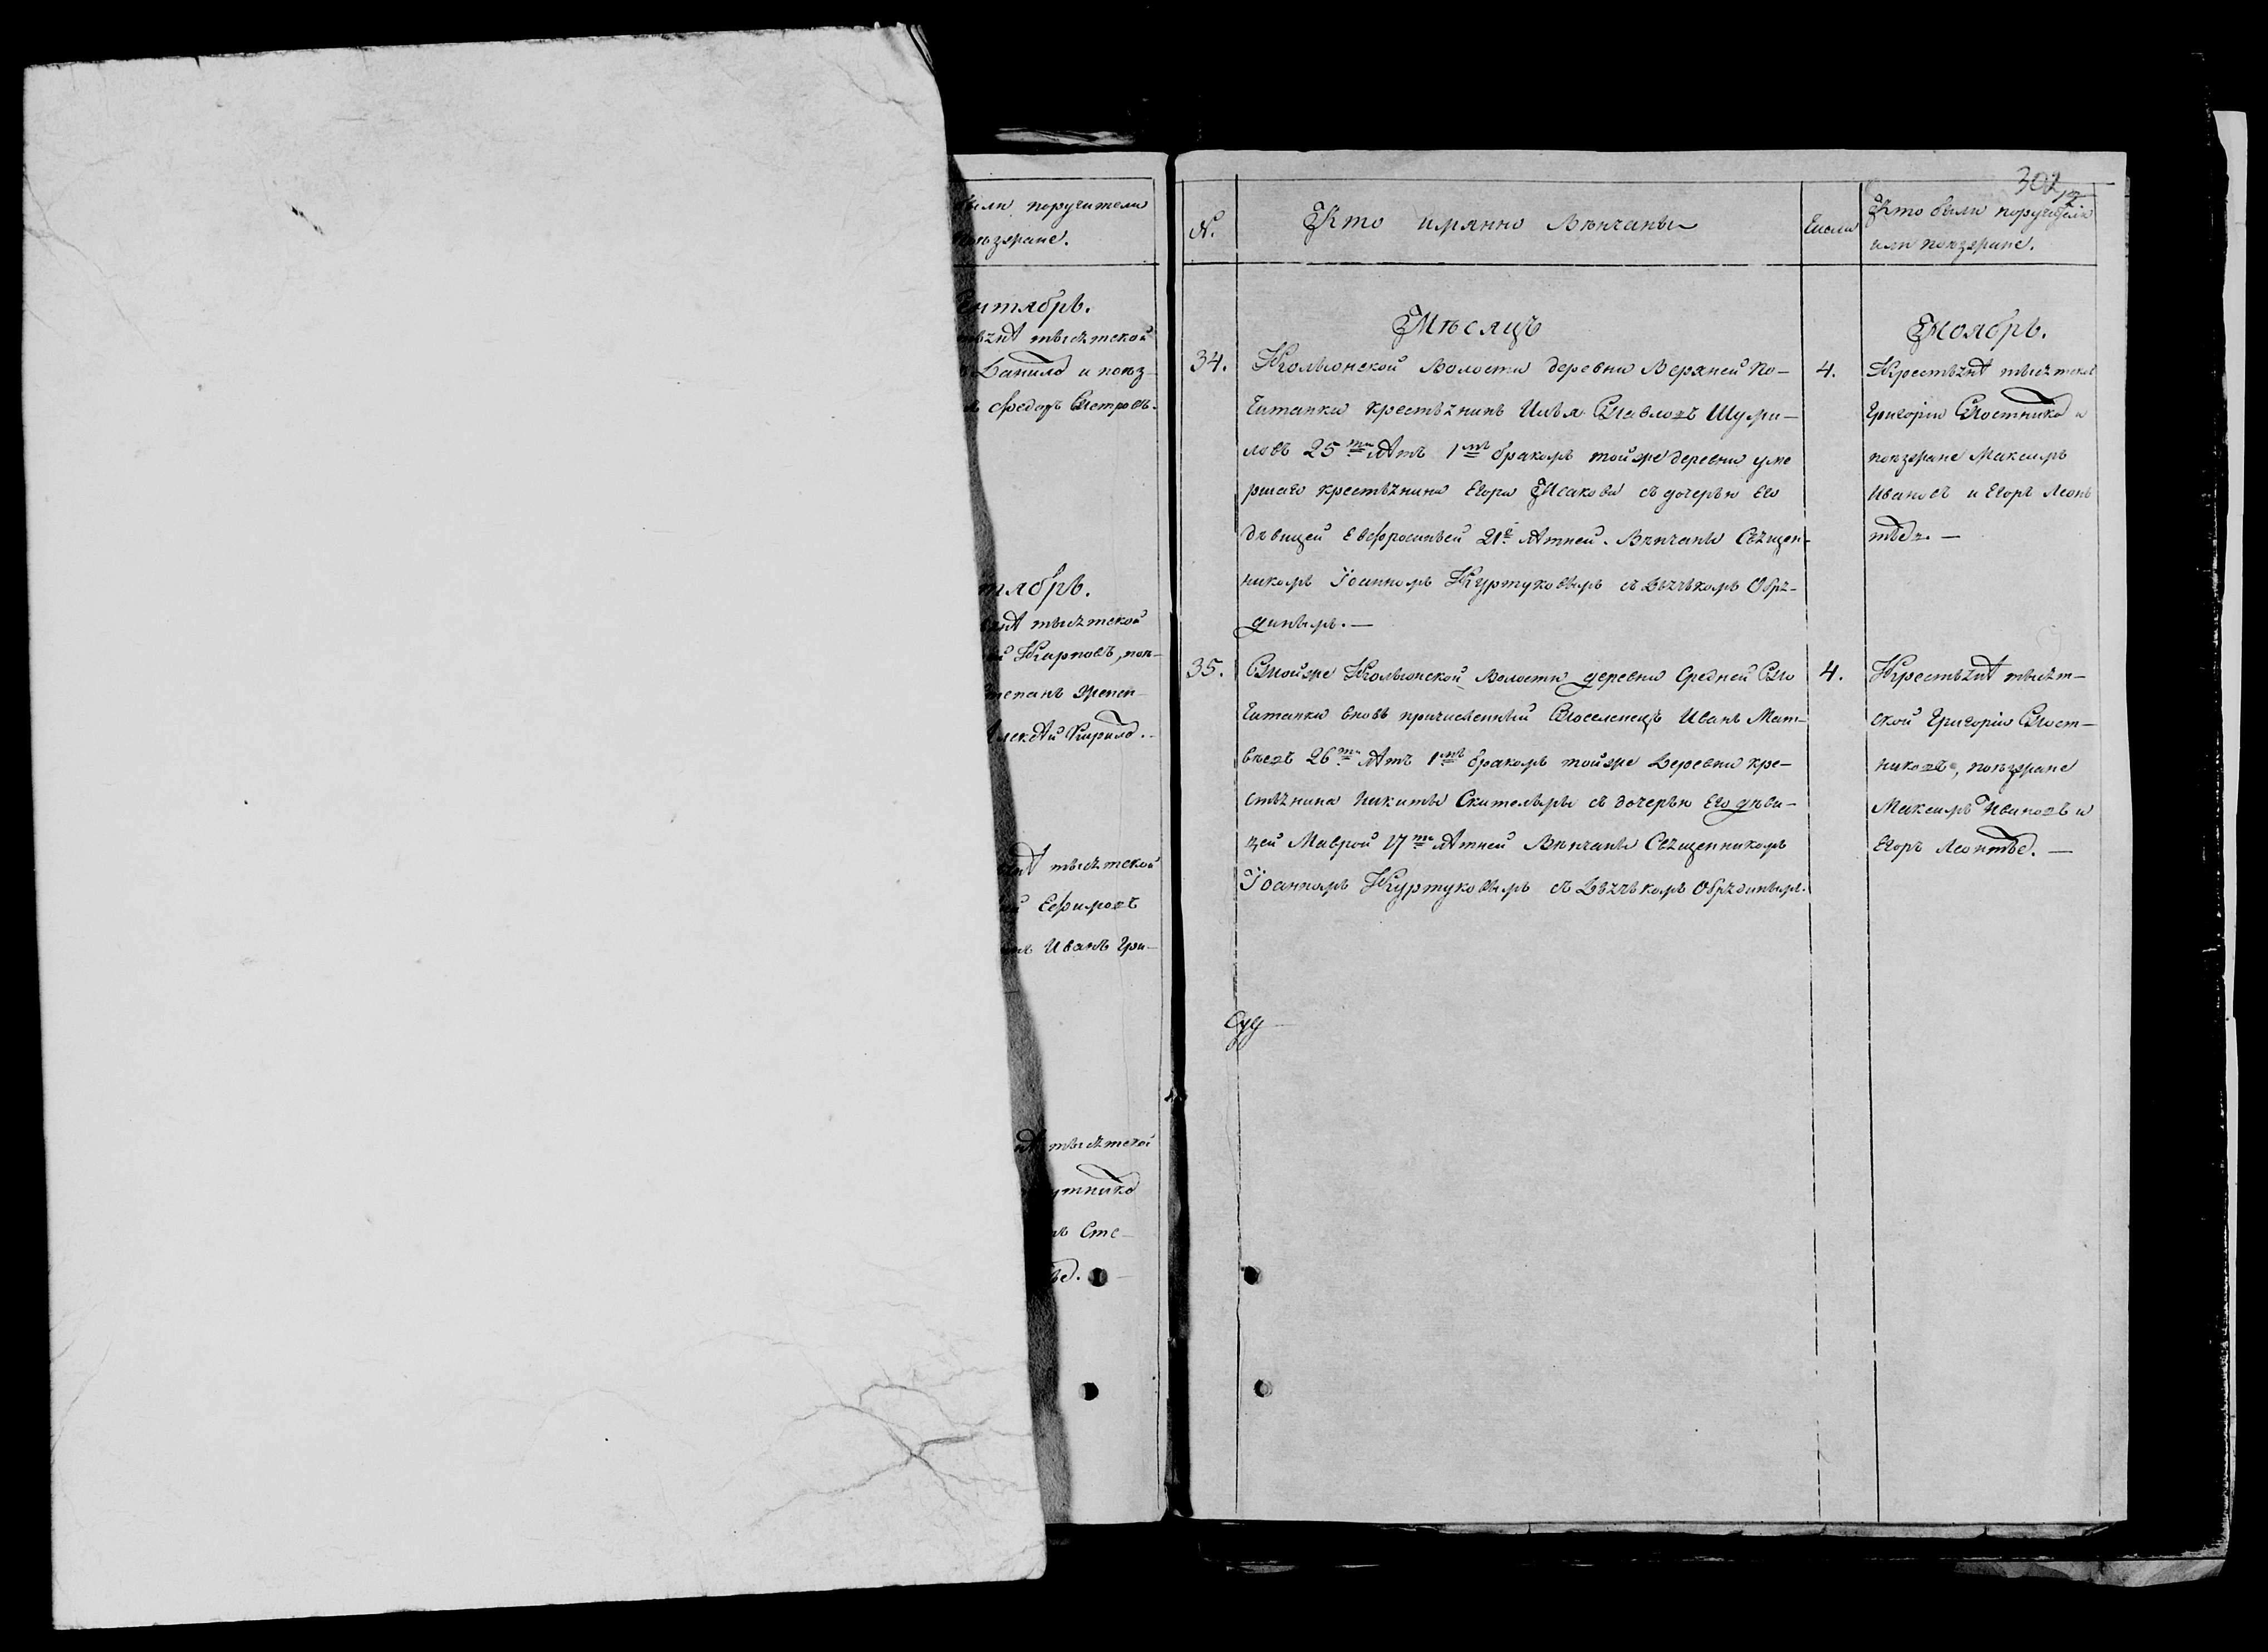 были поручители
поѣзжане.
тысяцкой
Данило и поѣз-
Федоръ Петровъ.
тябрь.
тысяцкой
Карповъ, поѣ-
Кирило.
тысяцкой
Ефимовъ
Иванъ Гри-
тысяцкой
Сте-
302
№.
Кто имянно Вѣнчаны
Числа
Кто были поручители
или поѣзжане.
Мѣсяцъ
Ноябрь.
34.
Кольюнской Волости деревни Верхней По-
читанки крестьянинъ Илья Павловъ Шуми-
ловъ 25ти лѣтъ 1мъ бракомъ той же деревни уме
ршаго крестьянина Егора Исакова съ дочерью Его
дѣвицей Евфросиньей 21й лѣтней. Вѣнчаны Священ-
никомъ Іоанномъ Куртуковымъ съ Дьячькомъ Обря-
динымъ.—
4.
Крестьянѣ тысяцкой
Григорій Постнико и
поѣзжане Максимъ
Ивановъ и Егоръ Леонь
тье.—
35.
Той же Кольюнской Волости деревни Средней По
читанки вновь причисленный Поселенецъ Иванъ Мат-
вѣевъ 26ти лѣтъ 1мъ бракомъ той же Деревни кре-
стьянина Никиты Скителымы съ дочерью Его дѣви-
цей Маврой 17ти лѣтней Вѣнчаны Священникомъ
Іоанномъ Куртуковымъ съ Дьячькомъ Обрядинымъ.
4.
Крестьянѣ тысят-
ской Григорій Пост-
никовъ, поѣзжане
Максимъ Ивановъ и
Егоръ Леонтье.—